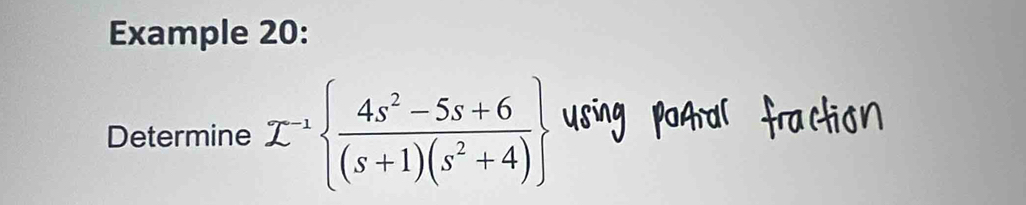 Example 20:
Determine ℒ⁻¹ { (4s² − 5s + 6) / ((s + 1)(s² + 4)) } using partial fraction